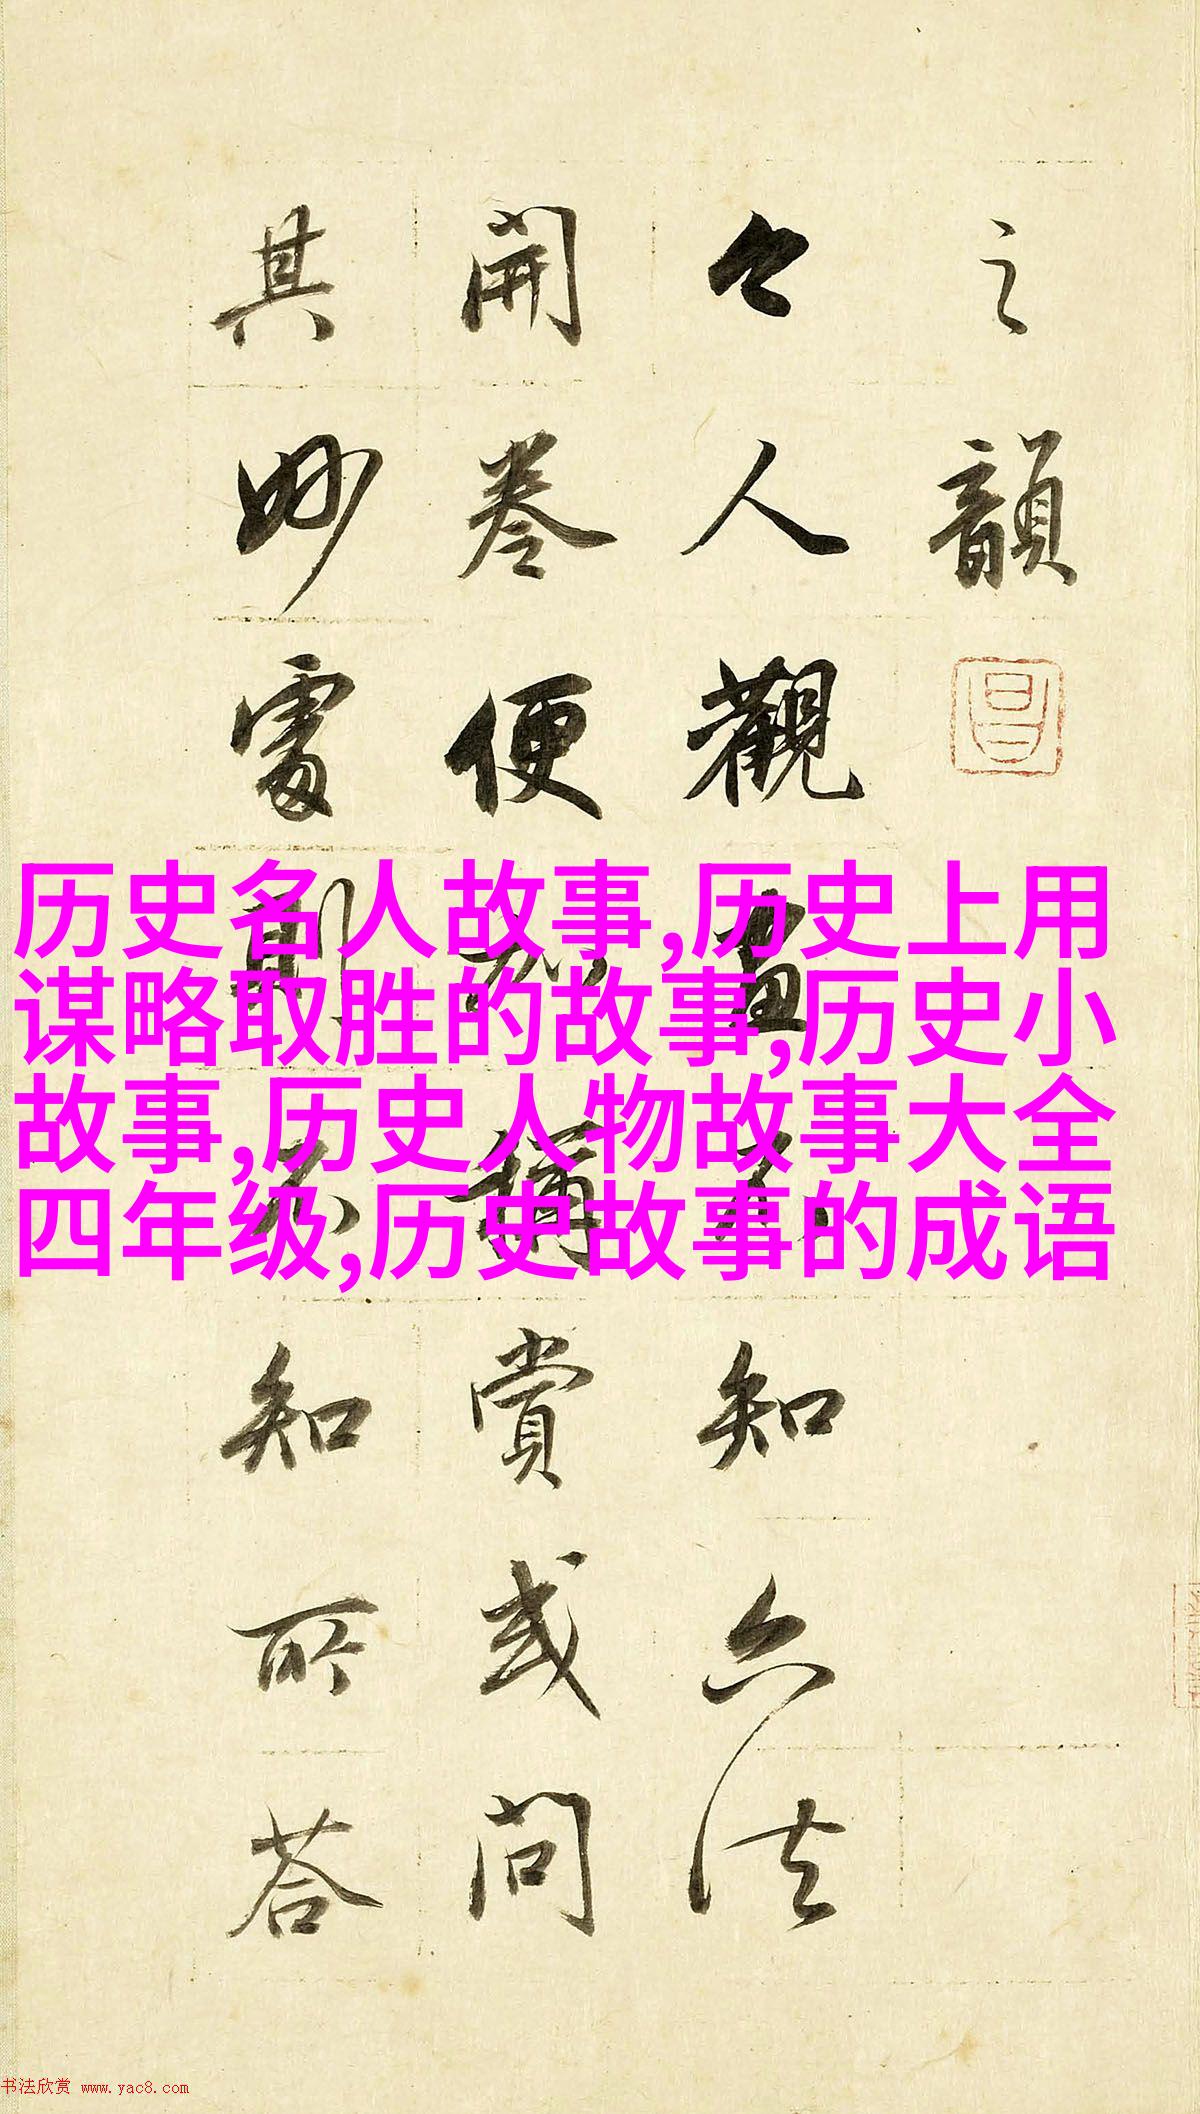 之韻
々人觀畫不知亦法
開卷便加稱賞或問
其妙處則不知所荅
历史名人故事,历史上用
谋略取胜的故事,历史小
故事,历史人物故事大全
四年级,历史故事的成语
书法欣赏 www.yac8.com